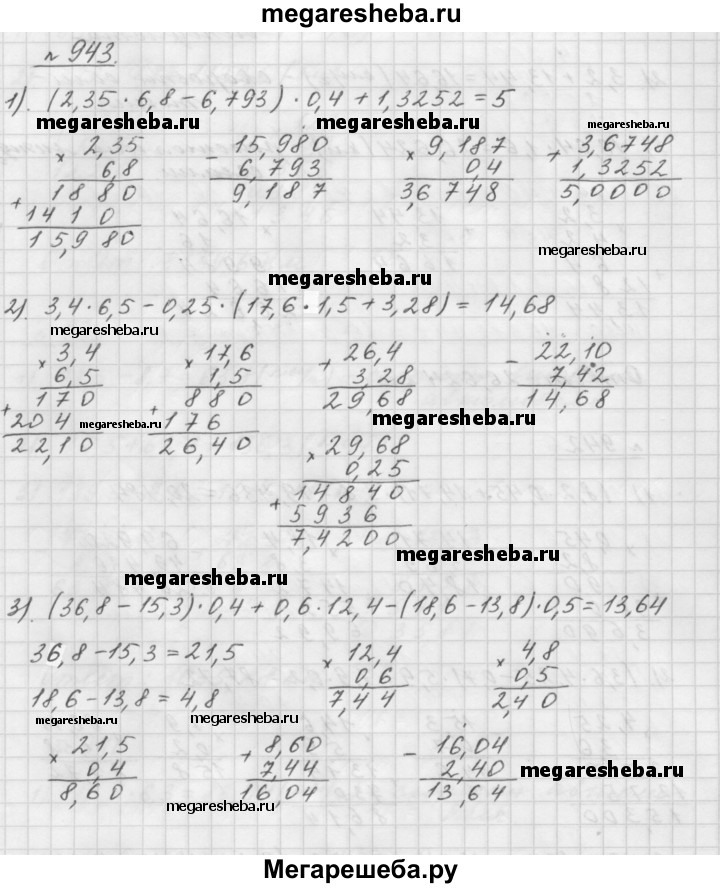 megaresheba.ru
№ 943.
1). (2,35 · 6,8 − 6,793) · 0,4 + 1,3252 = 5
megaresheba.ru megaresheba.ru megaresheba.ru
× 2,35 − 15,980 × 9,187 + 3,6748
6,8 6,793 0,4 1,3252
1880 9,187 3,6748 5,0000
+ 1410
15,980
megaresheba.ru
megaresheba.ru
2). 3,4 · 6,5 − 0,25 · (17,6 · 1,5 + 3,28) = 14,68
megaresheba.ru megaresheba.ru
× 3,4 × 17,6 + 26,4 − 22,10
6,5 1,5 3,28 7,42
170 880 29,68 14,68
+ 204 megaresheba.ru + 176
22,10 26,40
× 29,68
0,25
14840
+ 5936
7,4200
megaresheba.ru
megaresheba.ru
3). (36,8 − 15,3) · 0,4 + 0,6 · 12,4 − (18,6 − 13,8) · 0,5 = 13,64
36,8 − 15,3 = 21,5 × 12,4 × 4,8
0,6 0,5
18,6 − 13,8 = 4,8 7,44 2,40
megaresheba.ru megaresheba.ru
× 21,5 + 8,60 − 16,04
0,4 7,44 2,40 megaresheba.ru
8,60 16,04 13,64
megaresheba.ru
Мегарешеба.ру